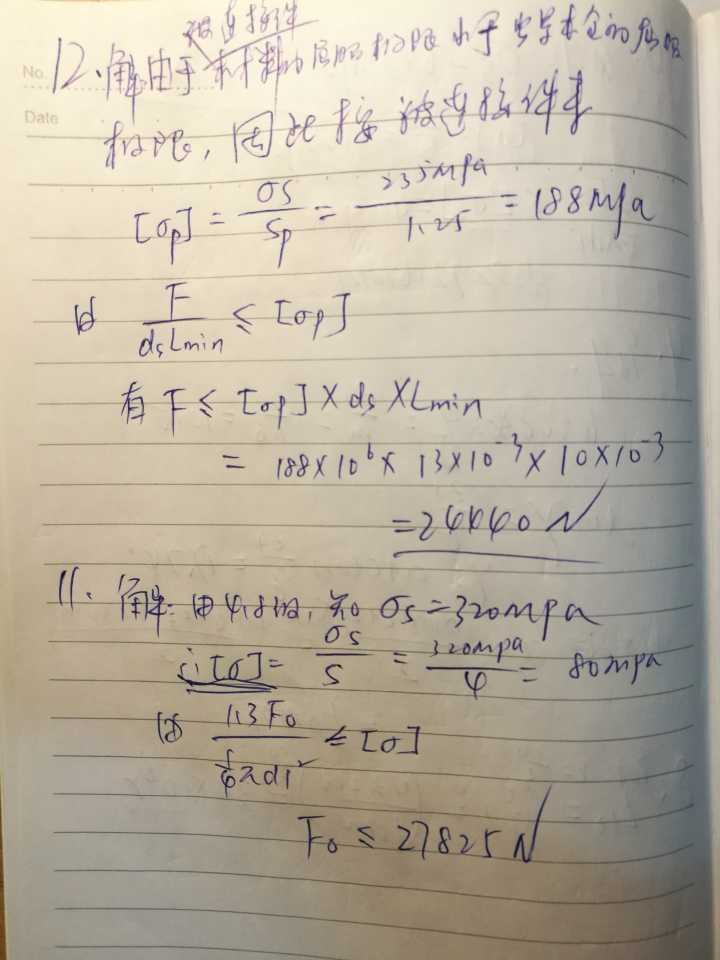 No.
Date
被连接件
12.解由于材料的屈服极限小于螺栓的屈服
极限,因此按被连接件来
[σp] = σs/Sp = 235mpa/1.25 = 188Mpa
由 F/dsLmin ≤ [σp]
有 F ≤ [σp] X ds XLmin
= 188X10⁶X 13X10⁻³X 10X10⁻³
=24440N
11. 解:由4.8级,知 σs=320mpa
∴[σ]= σs/S = 320mpa/4 = 80mpa
由 1.3F₀/¼πd1² ≤ [σ]
F₀ ≤ 27825N